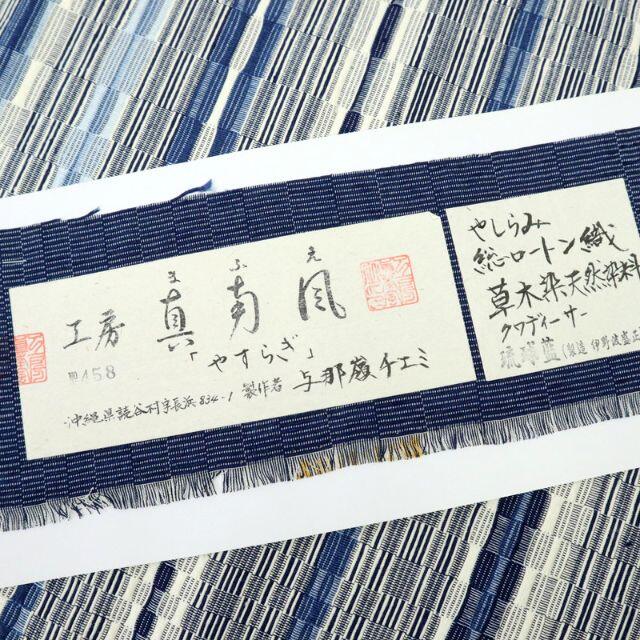 まふえ
工房 真南風
「やすらぎ」
458
沖縄県読谷村字長浜834-1 製作者 与那嶺チエミ
やしらみ
総ロートン織
草木染天然染料
クワディーサー
琉球藍(製造 伊野波盛正